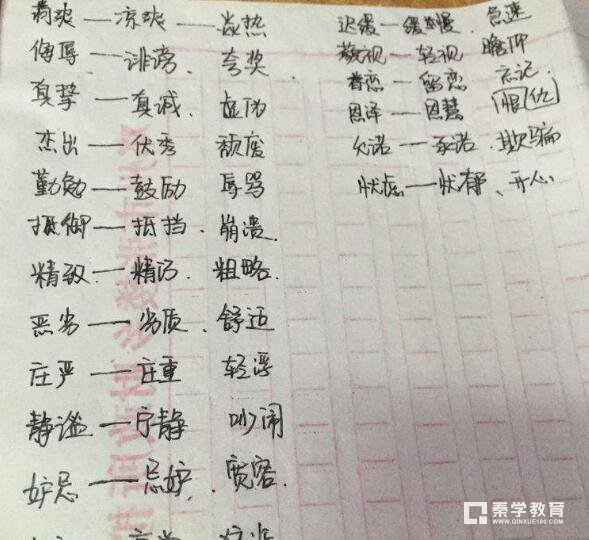 清爽——凉爽——炎热
侮辱——诽谤、夸奖
真挚——真诚、虚伪
杰出——优秀 颓废
勤勉——鼓励 辱骂
抵御——抵挡、崩溃
精致——精巧、粗略
恶劣——劣质、舒适
庄严——庄重 轻浮
静谧——宁静 吵闹
妒忌——忌妒、宽容
迟缓——缓慢、急速
蔑视——轻视 瞻仰
眷恋——留恋 忘记
恩泽——恩惠 恨(仇)
允诺——承诺、欺骗
忧虑——忧郁、开心
秦学教育
WWW.QINXUE100.COM